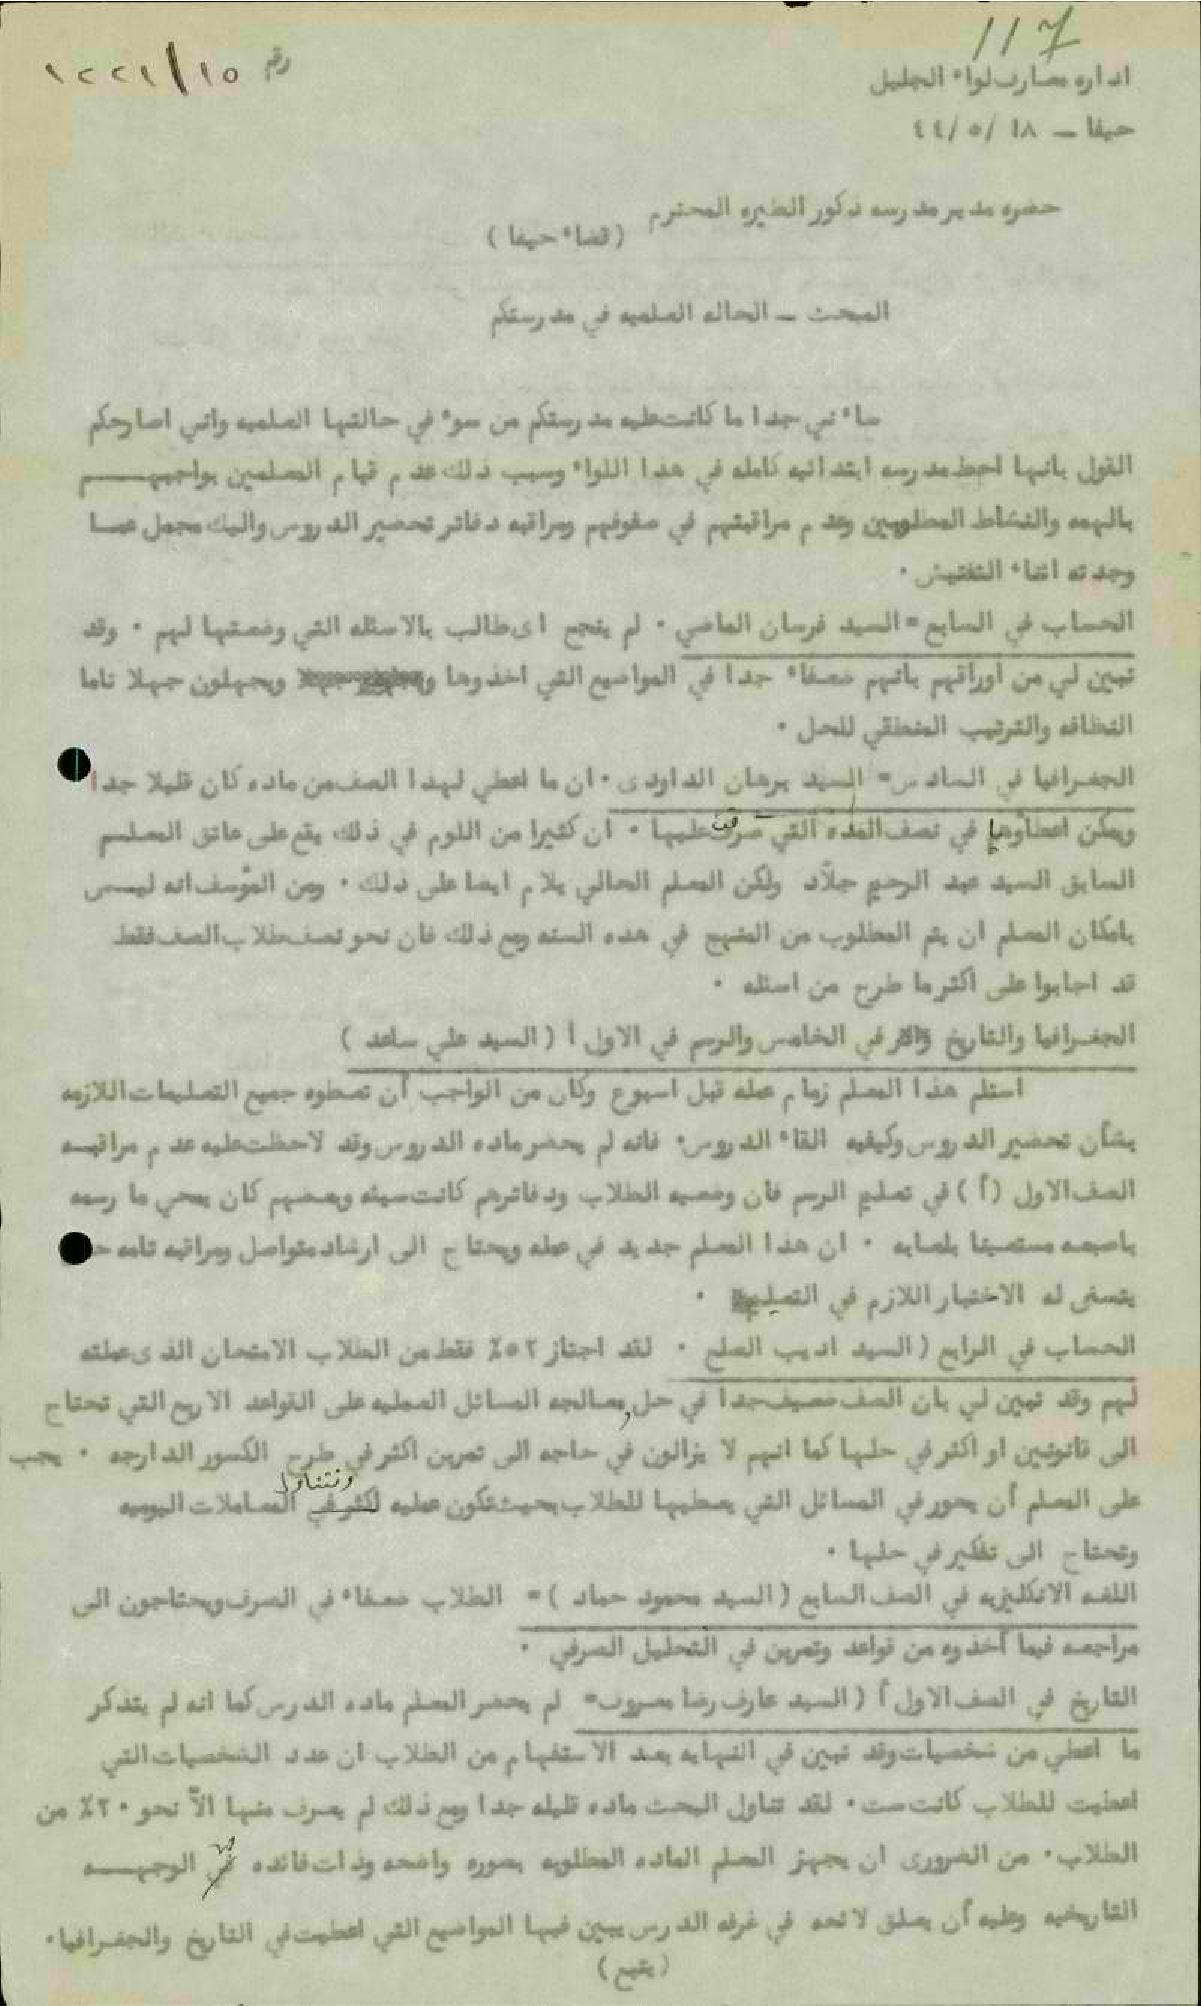 117
رقم ١٥/١٢٢١
اداره معارف لواء الجليل
حيفا — ١٨ /٥ /٤٤
حضره مدير مدرسه ذكور الطيره المحترم
(قضاء حيفا)
المبحث — الحاله العلميه في مدرستكم
ساءني جدا ما كانت عليه مدرستكم من سوء في حالتها العلميه واني اصارحكم
القول بانها احط مدرسه ابتدائيه كامله في هذا اللواء وسبب ذلك عدم قيام المعلمين بواجبهم
بالهمه والنشاط المطلوبين وعدم مراقبتهم في صفوفهم ومراقبه دفاتر تحضير الدروس واليك مجمل عما
وجدته اثناء التفتيش .
الحساب في السابع = السيد فرسان الماضي . لم ينجح اى طالب بالاسئله التي وضعتها لهم . وقد
تبين لي من اوراقهم بانهم ضعفاء جدا في المواضيع التي اخذوها ويجهلون جهلا تاما
النظافه والترتيب المنطقي للحل .
الجغرافيا في السادس = السيد برهان الداودى . ان ما اعطي لهذا الصف من ماده كان قليلا جدا
ويمكن اعطاؤها في نصف المده التي صرفت عليها . ان كثيرا من اللوم في ذلك يقع على عاتق المعلم
السابق السيد عبد الرحيم جلاّد ولكن المعلم الحالي يلام ايضا على ذلك . ومن المؤسف انه ليس
بامكان المعلم ان يتم المطلوب من المنهج في هذه السنه ومع ذلك فان نحو نصف طلاب الصف فقط
قد اجابوا على اكثر ما طرح من اسئله .
الجغرافيا والتاريخ في الخامس والرسم في الاول أ (السيد علي ساعد)
استلم هذا المعلم زمام عمله قبل اسبوع وكان من الواجب أن تعطوه جميع التعليمات اللازمه
بشأن تحضير الدروس وكيفيه القاء الدروس. فانه لم يحضر ماده الدروس وقد لاحظت عليه عدم مراقبه
الصف الاول (أ) في تعليم الرسم فان وضعيه الطلاب ودفاترهم كانت سيئه وبعضهم كان يمحي ما رسمه
باصبعه مستعينا بلعابه . ان هذا المعلم جديد في عمله ويحتاج الى ارشاد متواصل ومراقبه تامه
يتسنى له الاختبار اللازم في التعليم .
الحساب في الرابع (السيد اديب الصلح . لقد اجتاز ٥٢٪ فقط من الطلاب الامتحان الذى عملته
لهم وقد تبين لي بان الصف ضعيف جدا في حل ومعالجه المسائل العمليه على القواعد الاربع التي تحتاج
الى قانونين او اكثر في حلها كما انهم لا يزالون في حاجه الى تمرين اكثر في طرح الكسور الدارجه . يجب
على المعلم أن يحور في المسائل التي يعطيها للطلاب بحيث تكون عمليه وتتناول المعاملات اليوميه
وتحتاج الى تفكير في حلها .
اللغه الانكليزيه في الصف السابع (السيد محمود حماد) = الطلاب ضعفاء في الصرف ويحتاجون الى
مراجعه فيما أخذوه من قواعد وتمرين في التحليل الصرفي .
التاريخ في الصف الاول أ (السيد عارف رضا معروف = لم يحضر المعلم ماده الدرس كما انه لم يتذكر
ما اعطي من شخصيات وقد تبين في النهايه بعد الاستفهام من الطلاب ان عدد الشخصيات التي
اعطيت للطلاب كانت ست . لقد تناول البحث ماده قليله جدا ومع ذلك لم يعرف منها الاّ نحو ٢٠٪ من
الطلاب . من الضرورى ان يجهز المعلم الماده المطلوبه بصوره واضحه وذات فائده من الوجهه
التاريخيه وعليه أن يعلق لائحه في غرفه الدرس يبين فيها المواضيع التي اعطيت في التاريخ والجغرافيا .
(يتبع)